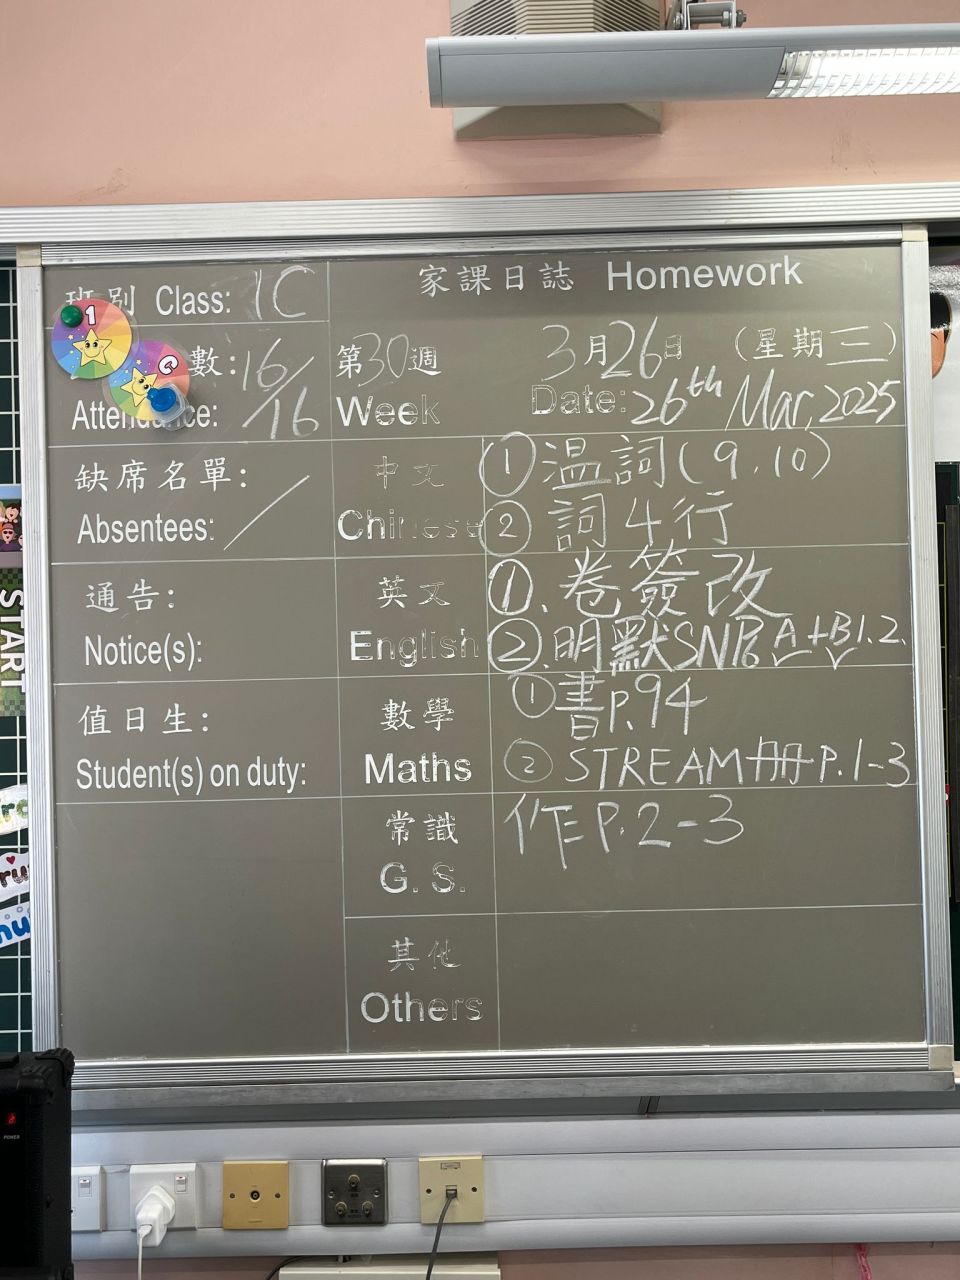 班別 Class: 1C
家課日誌 Homework
數: 16/16
Attendance:
第30週
Week
3月26日 (星期三)
Date: 26th Mar, 2025
缺席名單: /
Absentees:
中文
Chinese
① 溫詞(9.10)
② 詞4行
通告:
Notice(s):
英文
English
①. 卷簽改
②. 明默SN16 A+B1.2.
值日生:
Student(s) on duty:
數學
Maths
① 書P.94
② STREAM冊P.1-3
常識
G. S.
作P.2-3
其他
Others
1
C
START
POWER